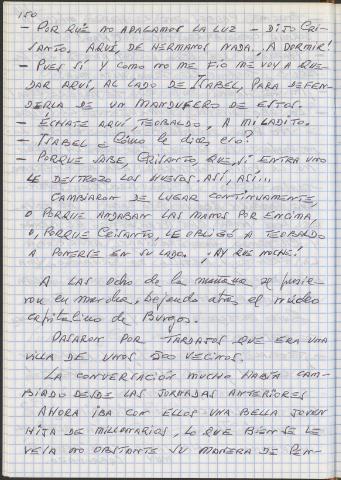 150
- POR QUÉ NO APAGAMOS LA LUZ - DIJO CRI-
SANTO. AQUÍ, DE HERMANOS NADA, A DORMIR!
- PUES SÍ Y COMO NO ME FIO ME VOY A QUE-
DAR AQUÍ, AL LADO DE ISABEL, PARA DEFEN-
DERLA DE UN MANDUFERO DE ESTOS.
- ÉCHATE AQUÍ, TEOBALDO, A MI LADITO.
- ISABEL ¿CÓMO le dices, eso?
- PORQUE SABE, CRISANTO, QUE, SI ENTRA UNO
LE DESTROZO LOS HUESOS. ASÍ, ASÍ...
CAMBIARON DE LUGAR CONTINUAMENTE,
O PORQUE ANDABAN LAS MANOS POR ENCIMA,
O, PORQUE CRISANTO, LE OBLIGÓ A TEOBALDO
A PONERSE EN SU LADO. ¡AY QUE NOCHE!
A LAS OCHO de la mañana se pusie-
ron en marcha, Dejando atrás, el núcleo
capitalino de BURGOS.
PASARON POR TARDAJOS QUE ERA UNA
VILLA DE UNOS 500 VECINOS.
LA CONVERSACIÓN MUCHO HABÍA CAM-
BIADO DESDE LAS JORNADAS ANTERIORES
AHORA IBA CON ELLOS UNA BELLA JOVEN
HIJA DE MILLONARIOS, LO QUE BIEN SE LE
VEÍA NO OBSTANTE SU MANERA DE PEN-